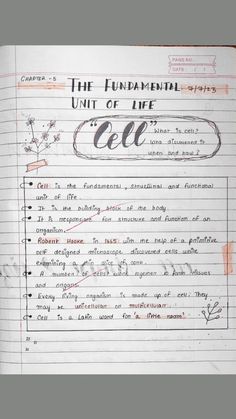 PAGE NO.
DATE: / /
CHAPTER - 5
THE FUNDAMENTAL 7/7/23
UNIT OF LIFE
"Cell"
What is cell?
Who discovered it
when and how?
Cell is the fundamental, structural and functional
unit of life.
It is the building block of the body.
It is responsible for structure and function of an
organism.
Robert Hooke in 1665 with the help of a primitive
self designed microscope discovered cells while
examining a thin slice of cork.
A number of cells work together to form tissues
and organs.
Every living organism is made up of cell; They
may be unicellular or multicellular.
Cell is a Latin word for 'a little room'